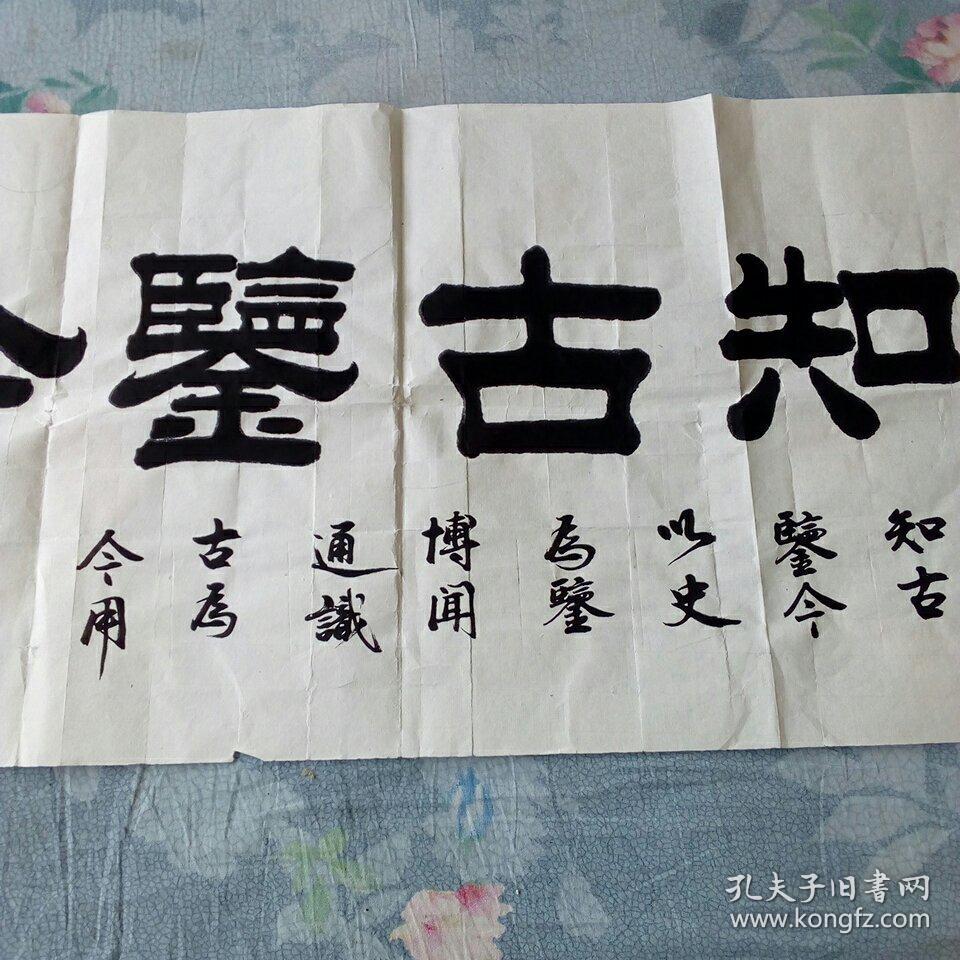 知古鑒
知古
鑒今
以史
為鑒
博闻
通識
古為
今用
孔夫子旧書网
www.kongfz.com